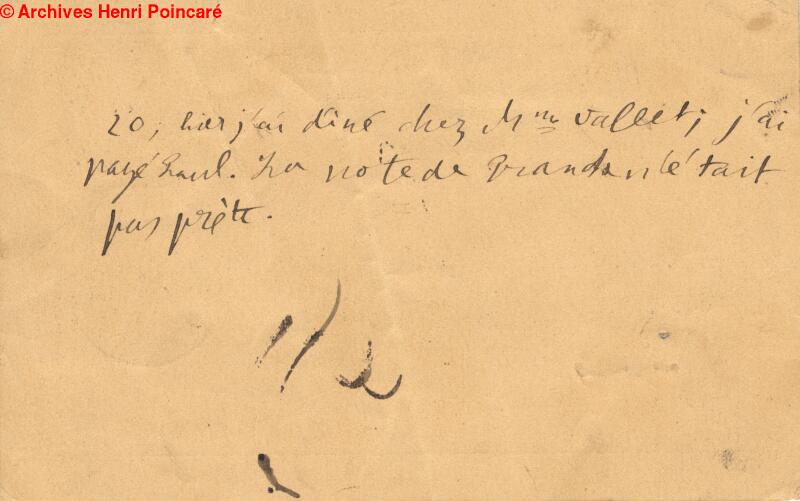 © Archives Henri Poincaré
20, hier j'ai dîné chez Mme Vallet; j'ai
payé Paul. La note de n'était
pas prête.